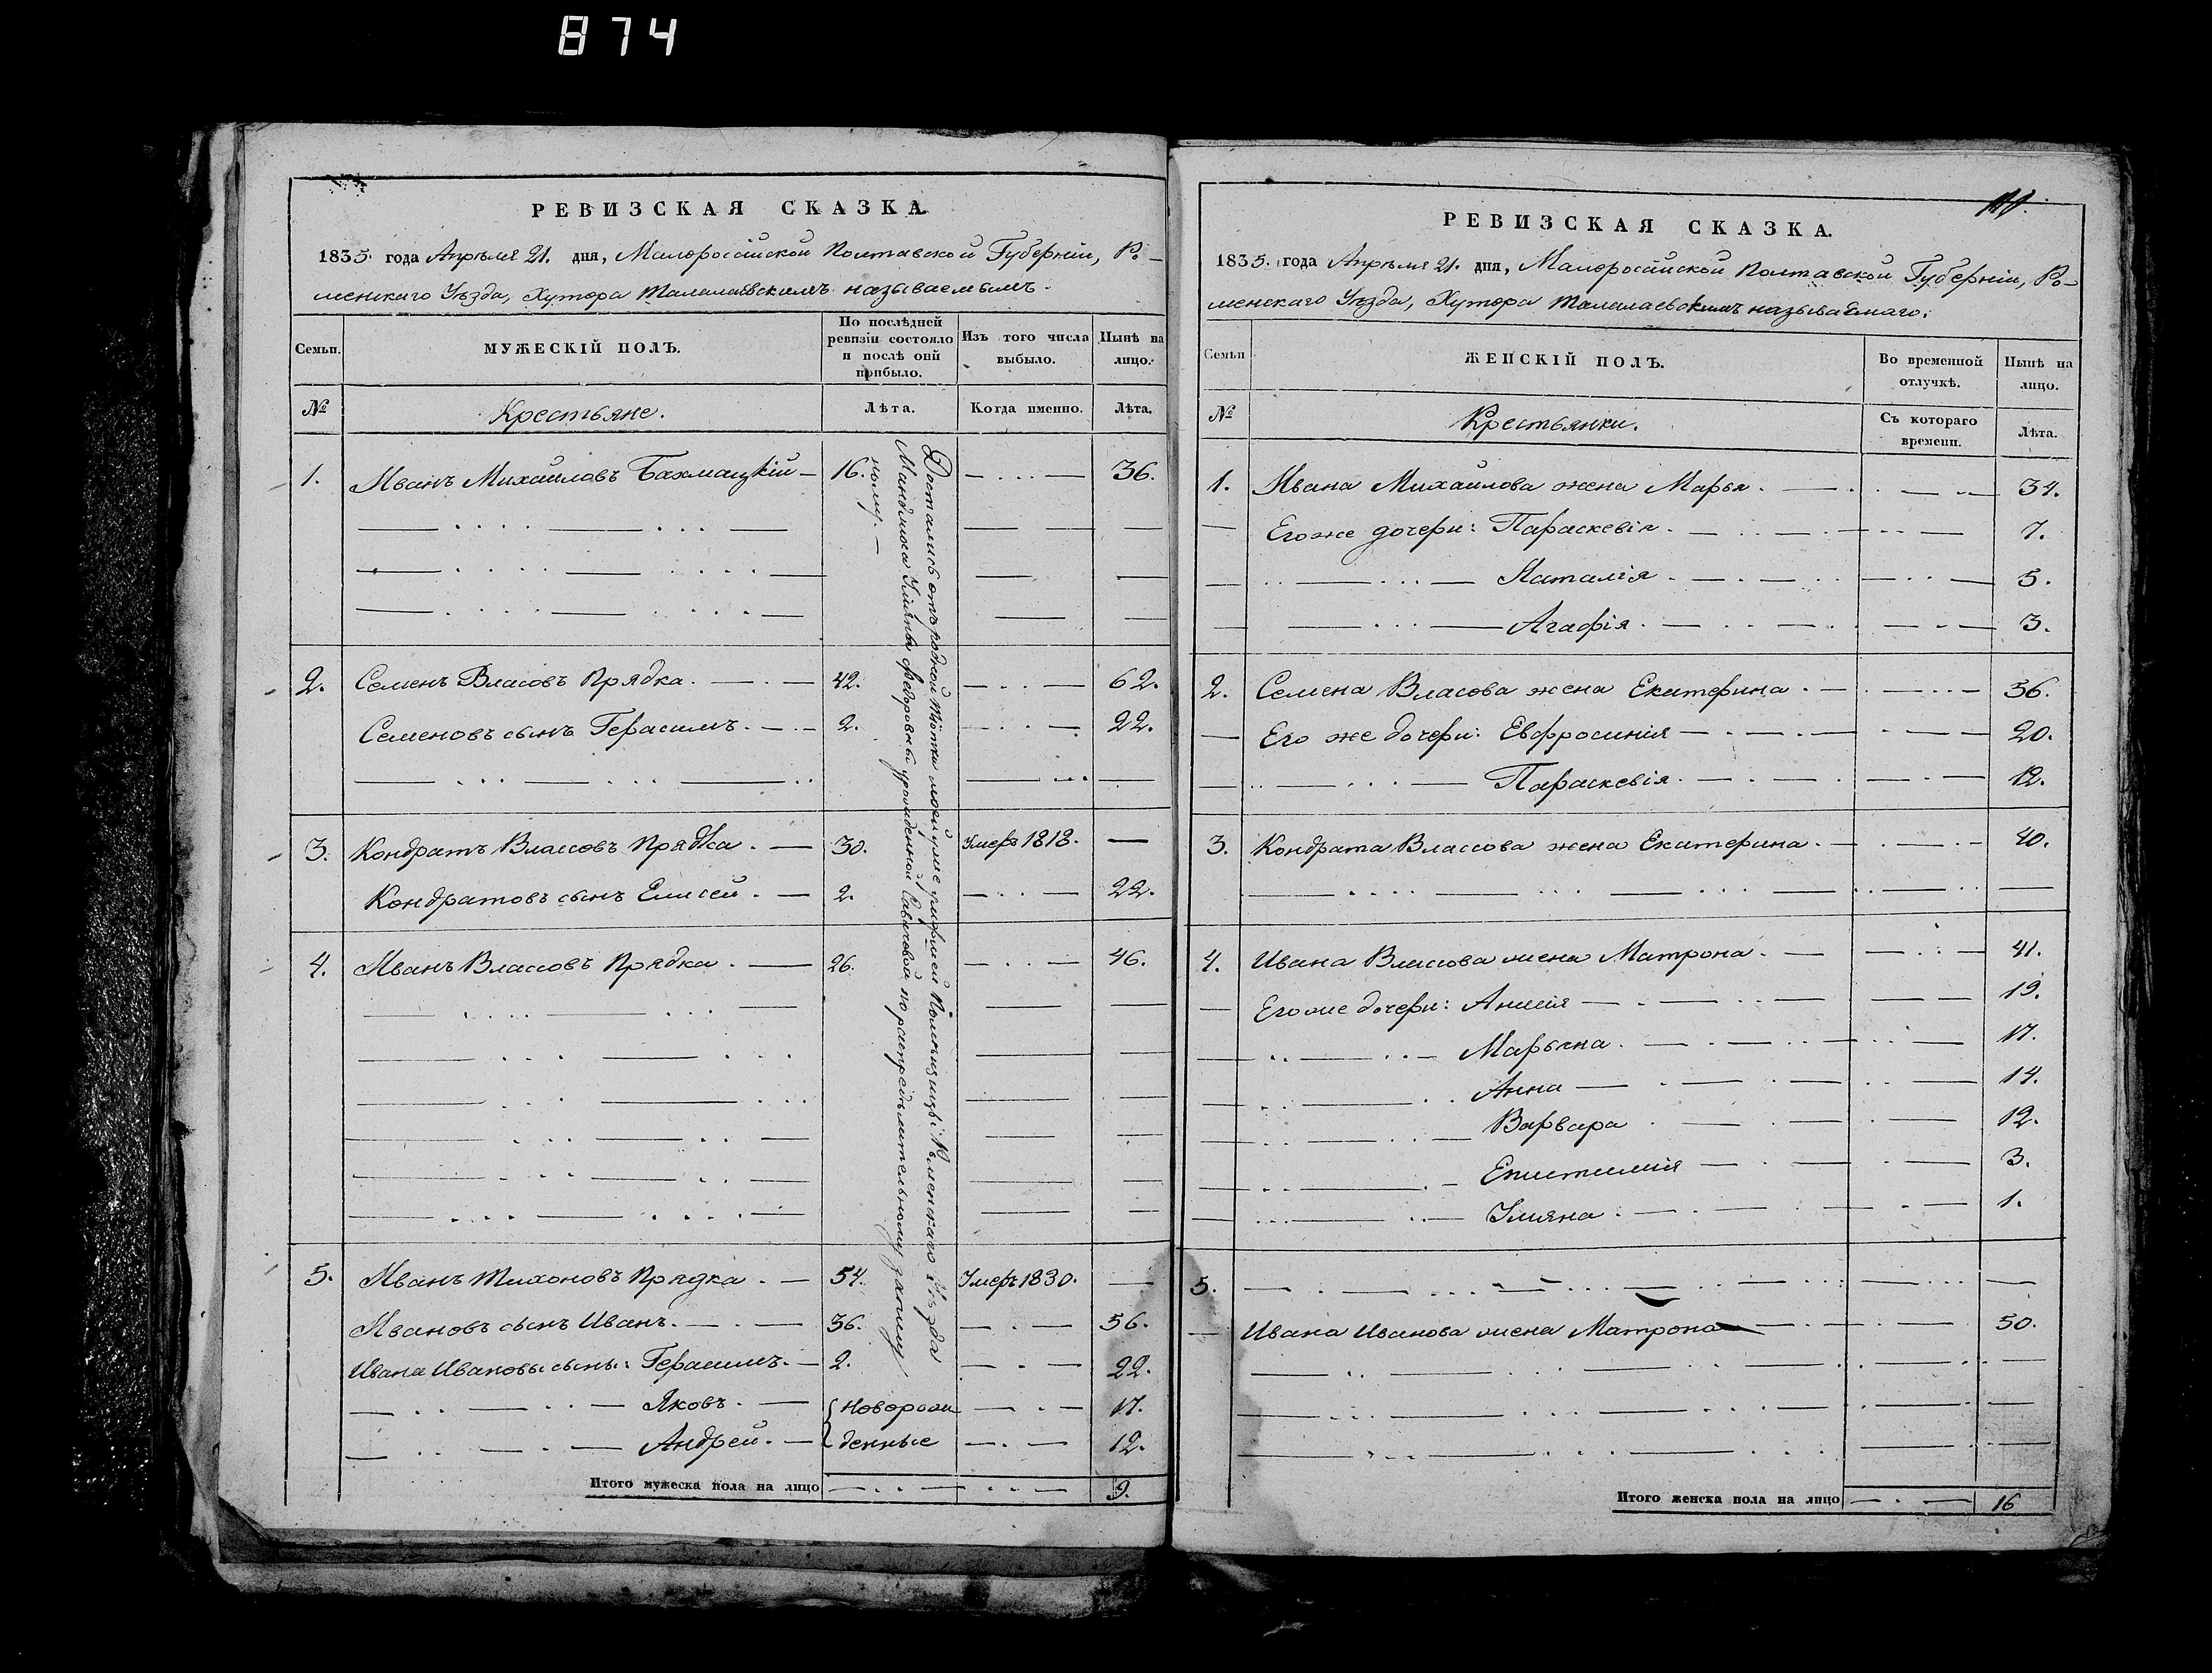 874
РЕВИЗСКАЯ СКАЗКА.
1835. года Апрѣля 21. дня, Малоросiйской Полтавской Губернiи, Ро-
менскаго Уѣзда, Хутора Талалаевскимъ называемымъ.
Семьи.
МУЖЕСКIЙ ПОЛЪ.
По послѣдней ревизiи состояло и послѣ онй прибыло.
Изъ того числа выбыло.
Нынѣ на лицо.
№
Крестьяне.
Лѣта.
Когда именно.
Лѣта.
1. Иванъ Михайловъ Бахмацкiй — 16. — 36.
2. Семенъ Власовъ Прядка. — 42. — 62.
Семеновъ сынъ Герасимъ. — 2. — 22.
3. Кондратъ Влассовъ Прядка. — 30. Умеръ 1818. —
Кондратовъ сынъ Елисей. — 2. — 22.
4. Иванъ Влассовъ Прядка. — 26. — 46.
5. Иванъ Тихоновъ Прядка. — 54. Умеръ 1830. —
Ивановъ сынъ Иванъ. — 36. — 56.
Ивана Ивановы сыны: Герасимъ. — 2. — 22.
Яковъ. — Новорож — 17.
Андрей. — денные — 12.
Достались отъ родной тiотки моей умершей Помѣщицы Роменскаго Уѣзда
Ульяны Федоровны урожденной Савичевой по распредѣлительному
Итого мужеска пола на лицо — 9.
РЕВИЗСКАЯ СКАЗКА.
1835. года Апрѣля 21. дня, Малоросiйской Полтавской Губернiи, Ро-
менскаго Уѣзда, Хутора Талалаевскимъ называемаго.
Семьи
ЖЕНСКIЙ ПОЛЪ.
Во временной отлучкѣ.
Нынѣ на лицо.
№
Крестьянки.
Съ котораго времени.
Лѣта.
1. Ивана Михайлова жена Марья. — 34.
Его же дочери: Параскевiя. — 7.
Наталiя. — 5.
Агафiя. — 3.
2. Семена Власова жена Екатерина. — 56.
Его же дочери: Евфросинiя — 20.
Параскевiя. — 12.
3. Кондрата Влассова жена Екатерина. — 40.
4. Ивана Влассова жена Матрона. — 41.
Его же дочери: — 19.
Марьяна. — 17.
Анна — 14.
Варвара — 12.
Епистимiя — 3.
Ульяна. — 1.
5.
Ивана Иванова жена Матрона — 50.
Итого женска пола на лицо — 16